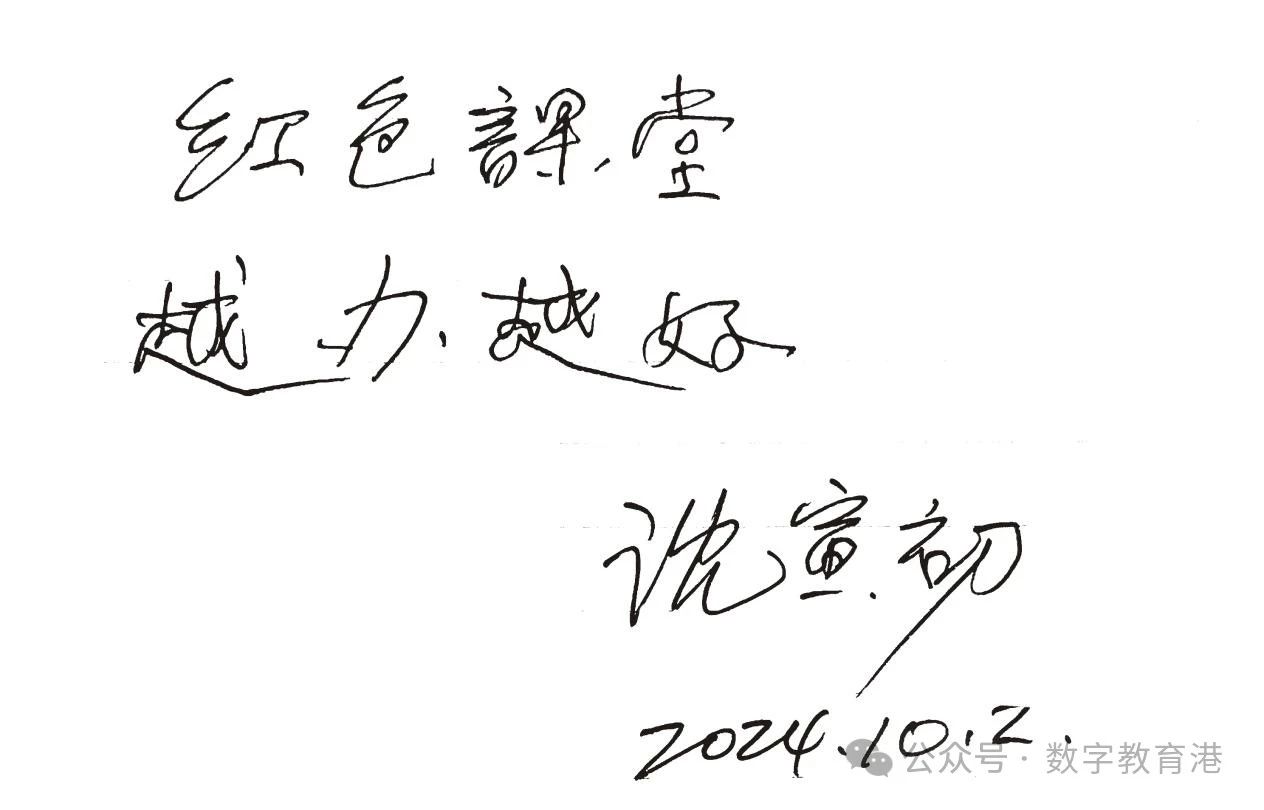 红色課堂
越办越好
沈宣初
2024.10.2.
公众号·数字教育港